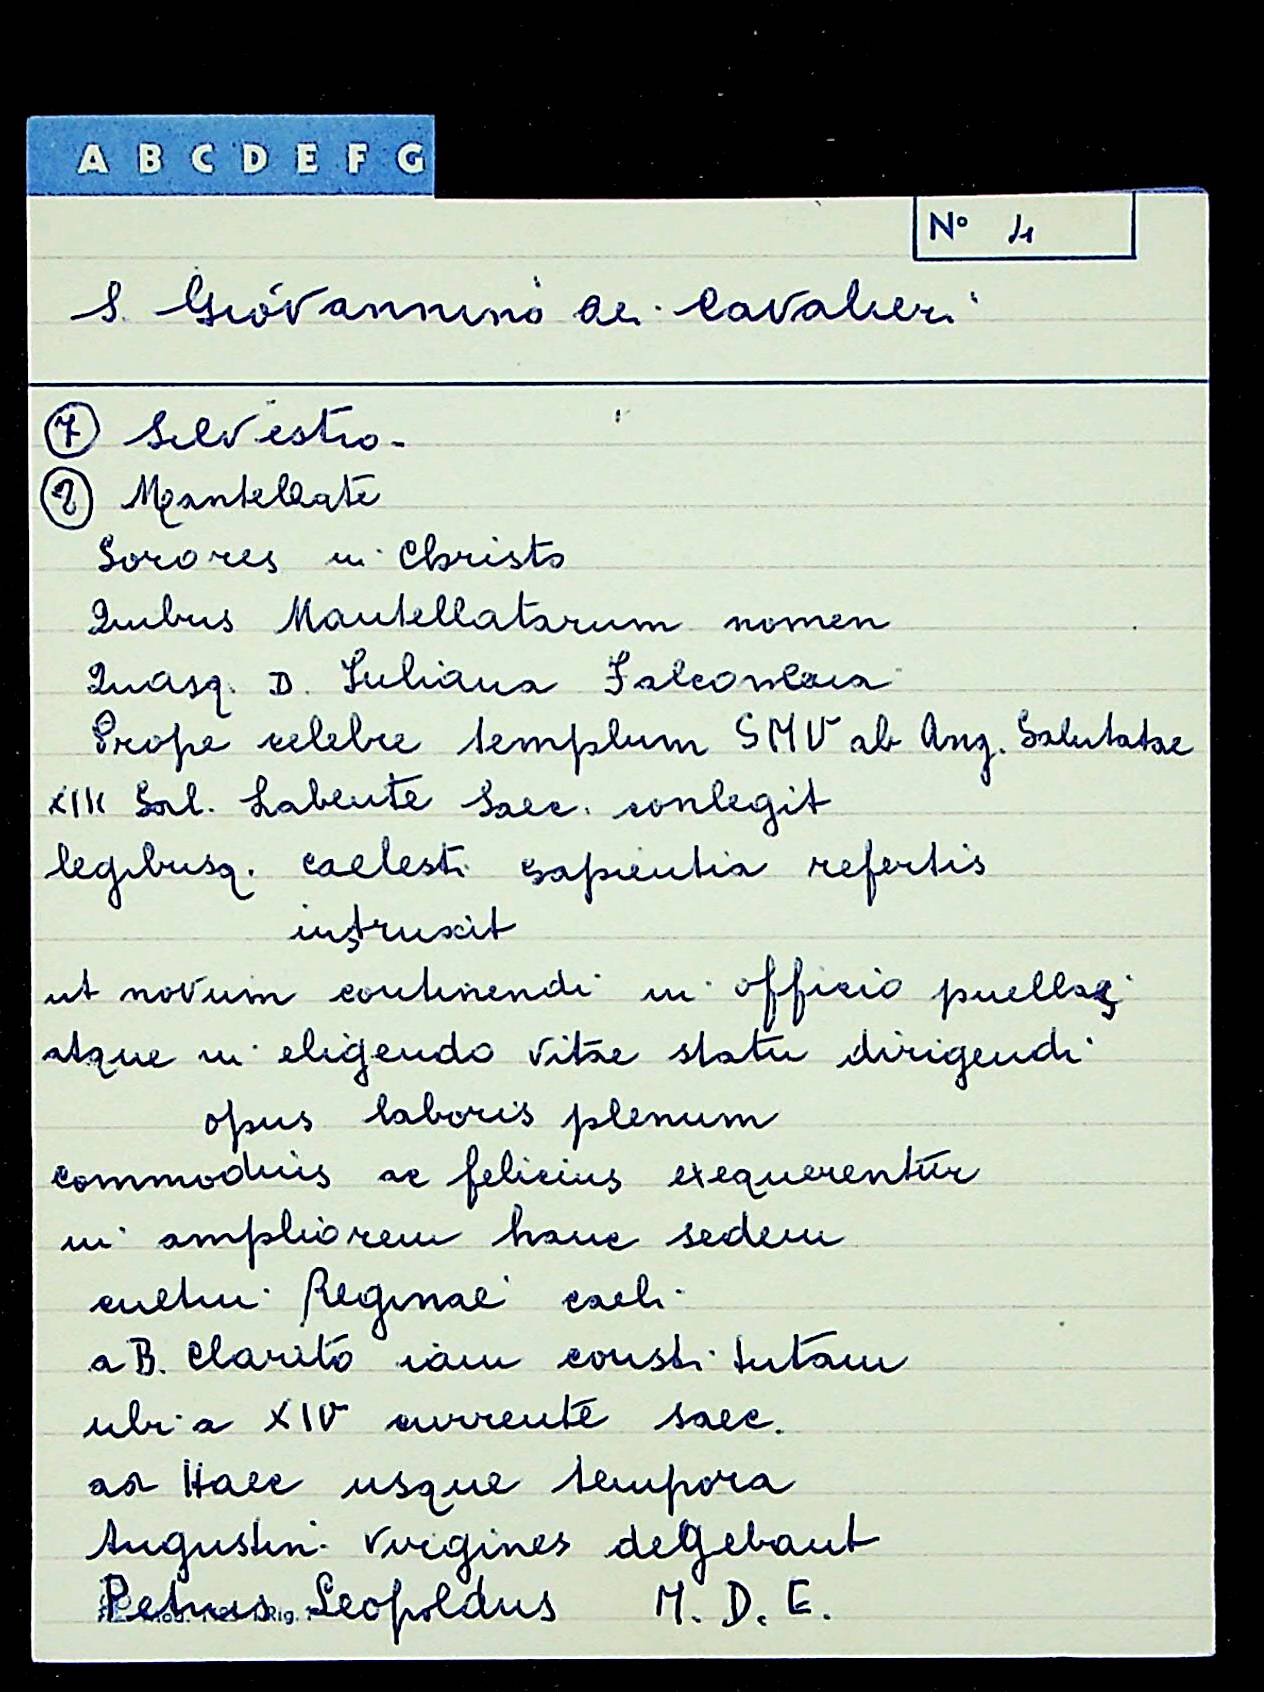 A B C D E F G
N° 4
S. Giovannino dei Cavalieri
7 Silvestro -
8 Mantellate
Sorores in Christo
Quibus Mantellatarum nomen
Quasq. D. Iuliana Falconeria
Prope celebre templum SMV ab Ang. Salutatae
XIII Sal. Labente Saec. conlegit
legibusq. caelesti sapientia refertis
instruxit
ut novum continendi in officio puellas
atque in eligendo vitae statu dirigendi
opus laboris plenum
commodius ac felicius exequerentur
in ampliorem hanc sedem
cultui Reginae caeli
a B. Clarito iam constitutam
ubi a XIV currente saec.
ad Haec usque tempora
Augustin. virgines degebant
Petrus Leopoldus M. D. E.